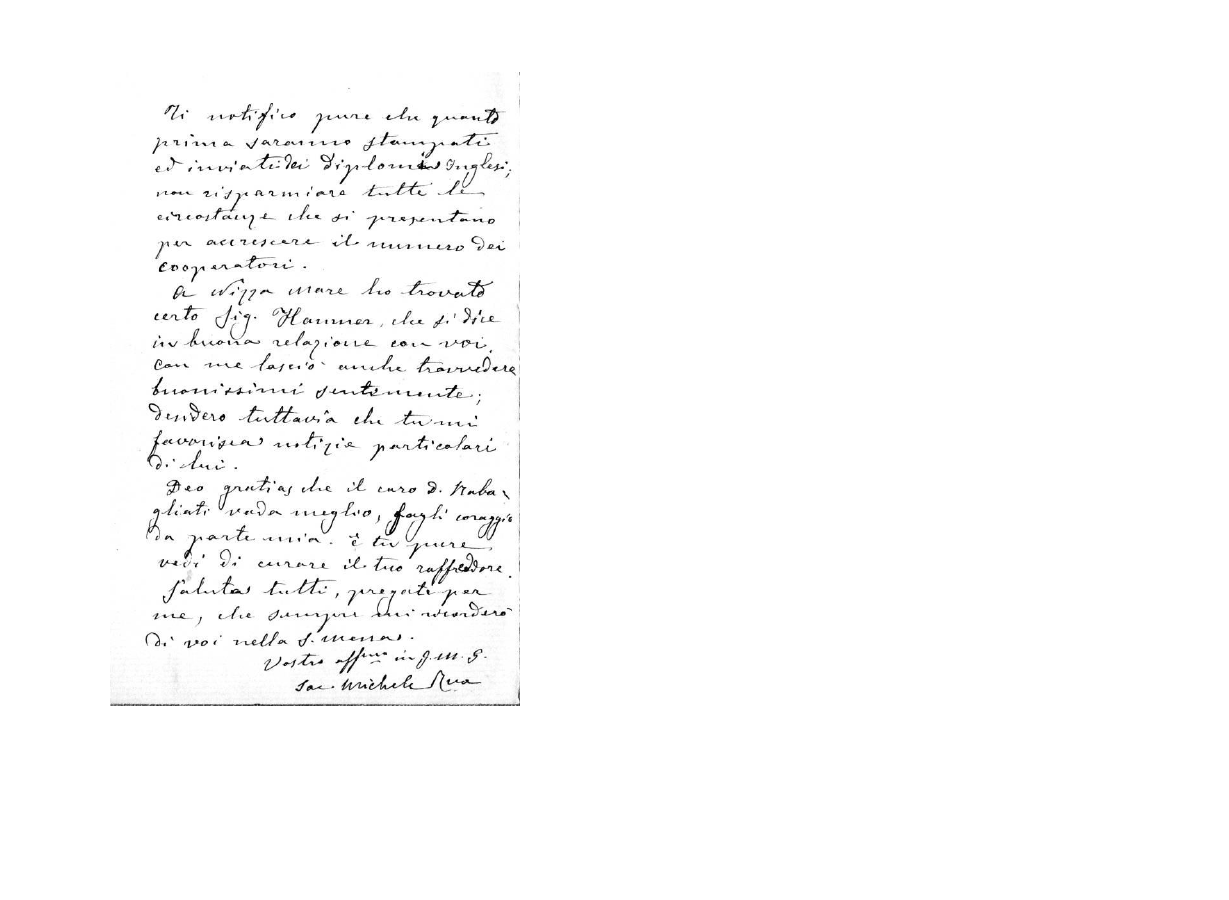 Ti notifico pure che quanto
prima saranno stampati
ed inviati dei diplomi Inglesi;
non risparmiare tutte le
circostanze che si presentano
per accrescere il numero dei
cooperatori.
A Nizza Mare ho trovato
certo Sig. Hanmer, che si dice
in buona relazione con voi.
Con me lasciò anche travvedere
buonissimi sentimente;
desidero tuttavia che tu mi
favorisca notizie particolari
di lui.
Deo gratias che il caro D. Raba-
gliati vada meglio, fagli coraggio
da parte mia. E tu pure
vedi di curare il tuo raffreddore.
Saluta tutti, pregate per
me, che sempre mi ricorderò
di voi nella S. Messa.
Vostro affmo in J. M. G.
Sac. Michele Rua